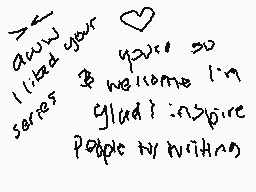 ><
aww
I liked your
series
♡
your so
welcome I'm
glad I inspire
People my writing